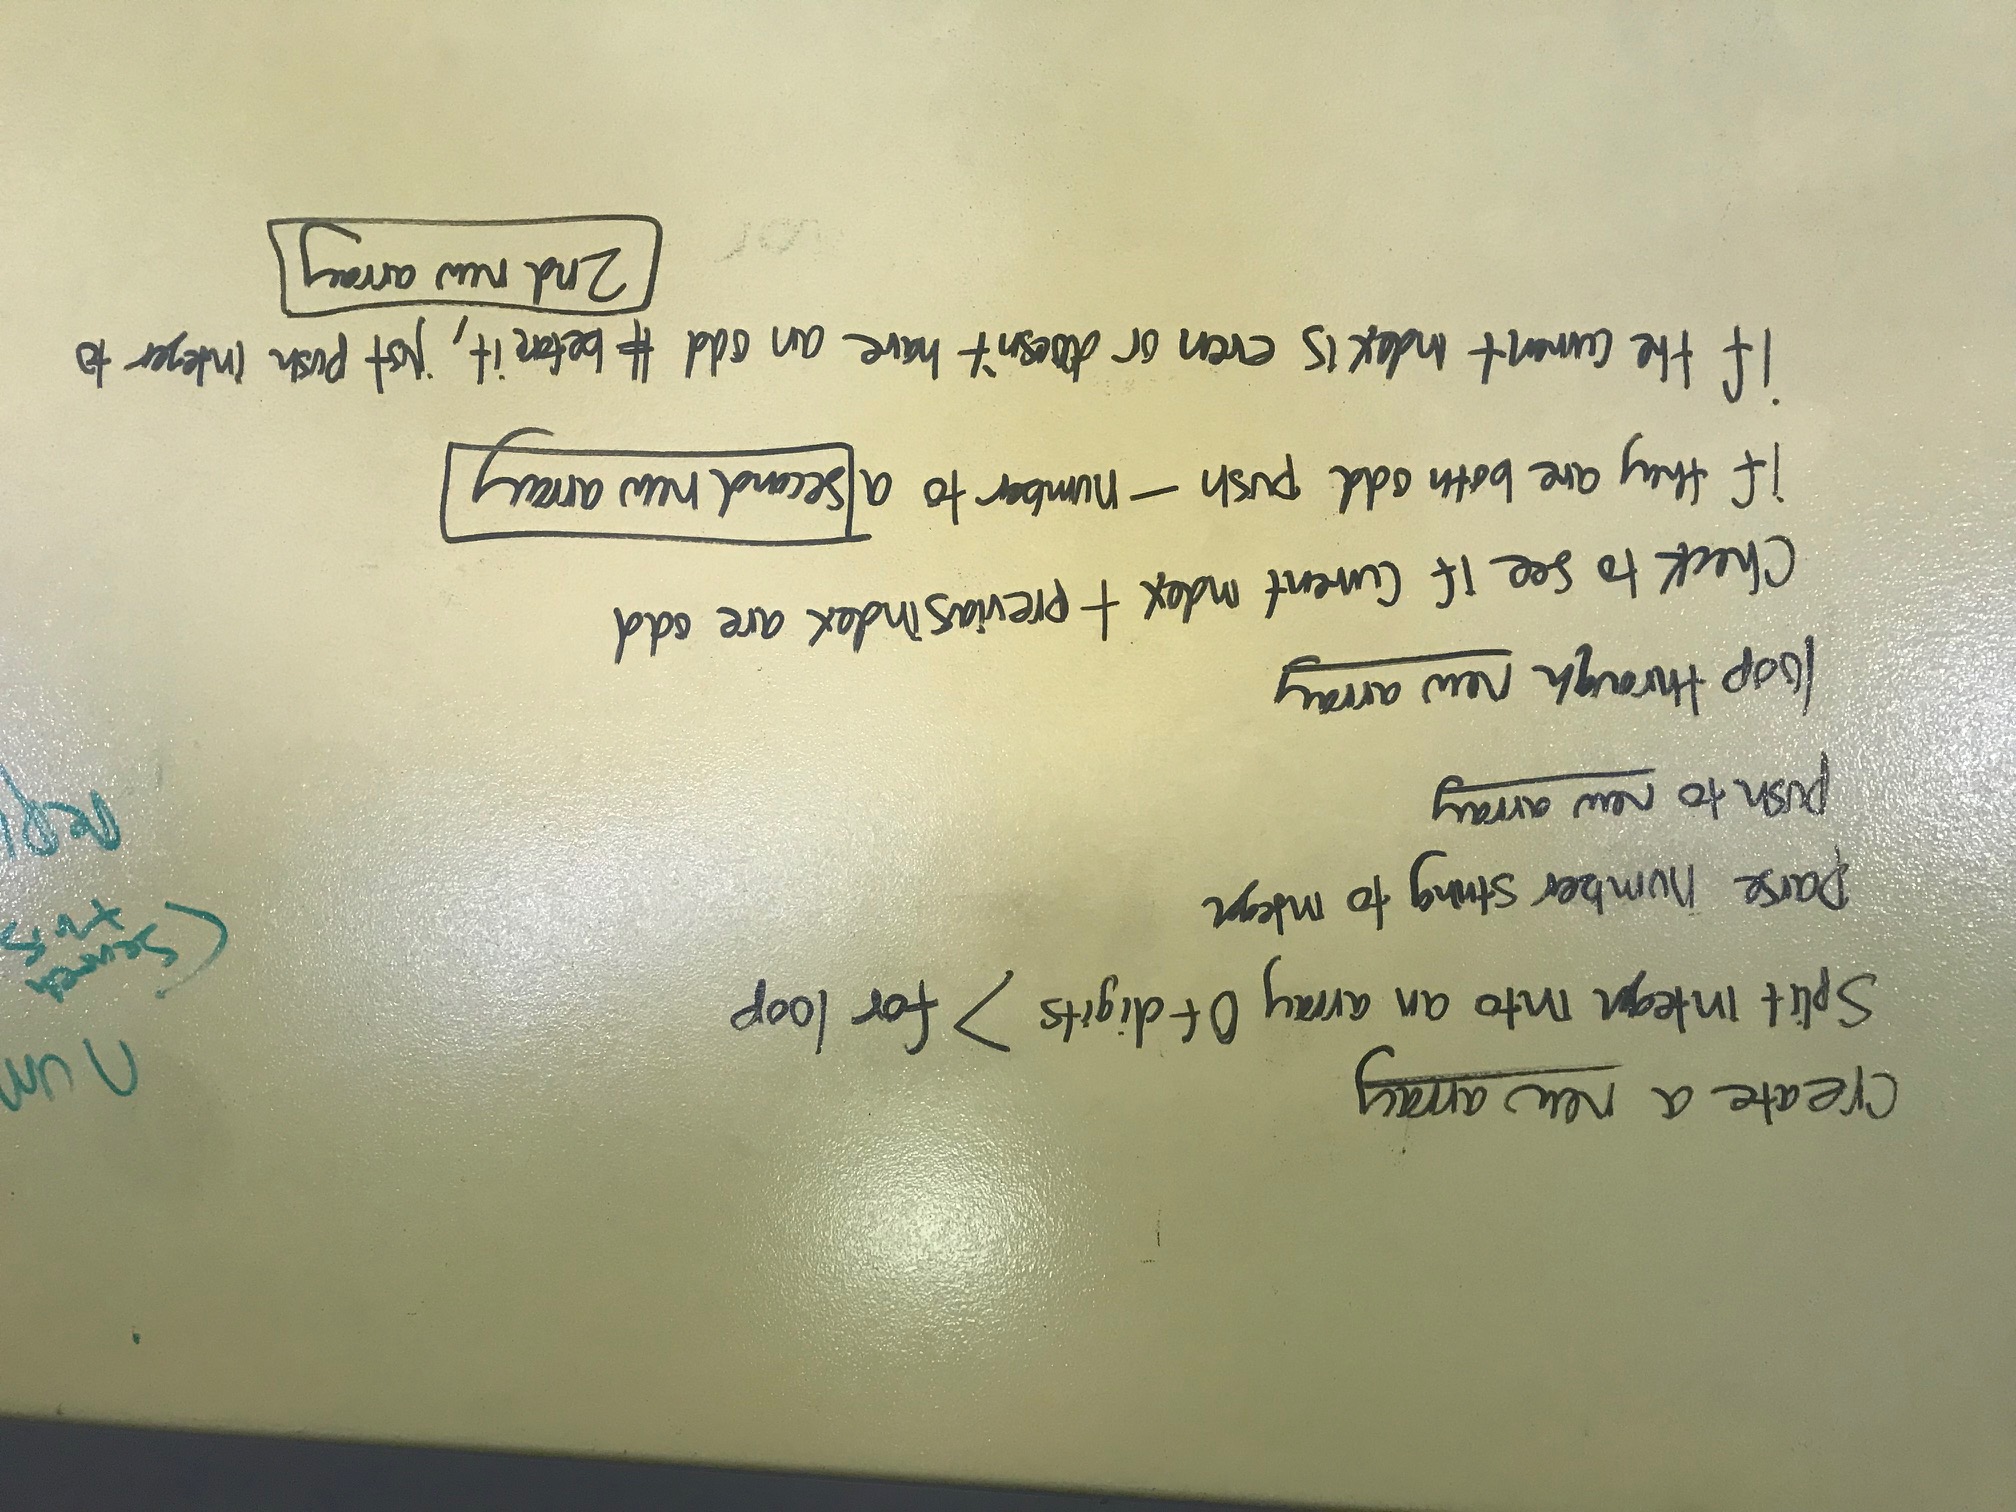 Create a new array
Split integer into an array Of digits > for loop
parse number string to integer
push to new array
loop through new array
Check to see if current index + previous index are odd
if they are both odd push — number to a second new array
if the current index is even or doesn't have an odd # before it, just push integer to
2nd new array
or
num
(search
this
repl